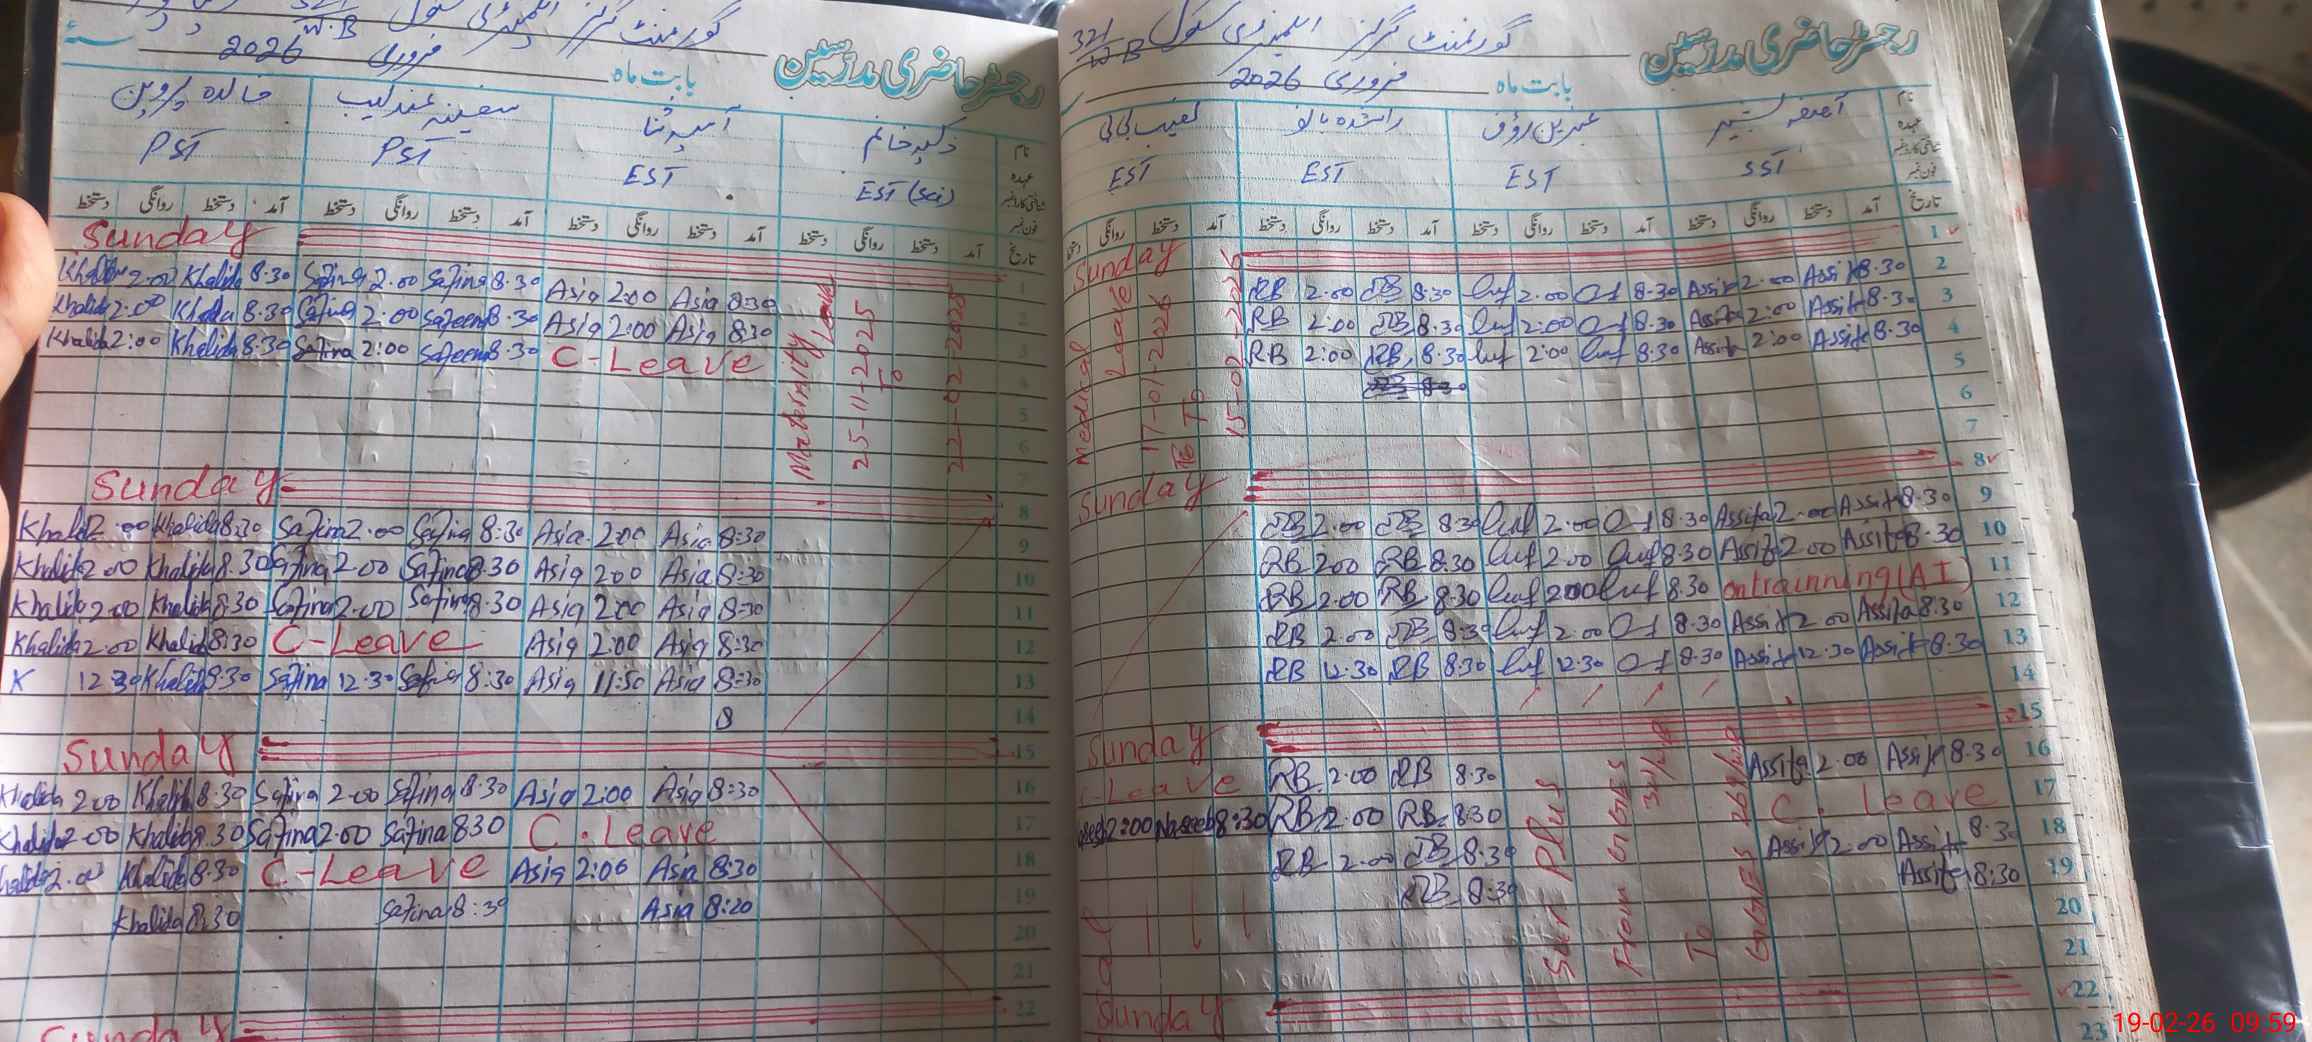 گورنمنٹ گرلز ایلیمنٹری سکول 321/W.B
رجسٹر حاضری مدرسین
بابت ماہ فروری 2026
نام آصفہ بشیر عنبرین رؤف راشدہ بانو نصیب بی بی
عہدہ SST EST EST EST
شناختی کارڈ نمبر
فون نمبر
تاریخ آمد دستخط روانگی دستخط آمد دستخط روانگی دستخط آمد دستخط روانگی دستخط آمد دستخط روانگی دستخط
1 Sunday
2 Assifa 8.30 Assifa 2.00 8.30 2.00 RB 8.30 RB 2.00
3 Assifa 8.30 Assifa 2:00 8.30 2:00 RB 8.30 RB 2:00
4 Assifa 8.30 Assifa 2:00 8.30 2:00 RB 8.30 RB 2:00
5 8.30
6
7
Medical Leave 17-01-2026 To 15-02-2026
8 Sunday
9 Assifa 8.30 Assifa 2.00 8.30 2.00 RB 8.30 RB 2.00
10 Assifa 8.30 Assifa 2.00 8.30 2.00 RB 8.30 RB 2.00
11 on trainning (AI) 8.30 2.00 RB 8.30 RB 2.00
12 Assifa 8.30 Assifa 2.00 8.30 2.00 RB 8.30 RB 2.00
13 Assifa 8.30 Assifa 12.30 8.30 12.30 RB 8.30 RB 12.30
14
15 Sunday
16 Assifa 8.30 Assifa 2.00 RB 8.30 RB 2.00 C-Leave
17 C. Leave RB 8.30 RB 2.00 Naseeb 8:30 2:00
18 Assifa 8.30 Assifa 2.00 RB 8.30 RB 2.00
19 Assifa 8:30 RB 8:30
20
21
Plus From To
22 Sunday
23
گورنمنٹ گرلز ایلیمنٹری سکول 321/W.B
رجسٹر حاضری مدرسین
بابت ماہ فروری 2026
نام ذکیہ خانم آسیہ ثنا سفینہ عندلیب خالدہ پروین
عہدہ EST (Sci) EST PST PST
شناختی کارڈ نمبر
فون نمبر
تاریخ آمد دستخط روانگی دستخط آمد دستخط روانگی دستخط آمد دستخط روانگی دستخط آمد دستخط روانگی دستخط
1 Sunday
2 Asia 8:30 Asia 2:00 Safina 8.30 Safina 2.00 Khalida 8.30 Khalida 2.00
3 Asia 8:30 Asia 2:00 Safeena 8.30 Safina 2:00 Khalida 8.30 Khalida 2:00
4 C-Leave Safeena 8.30 Safina 2:00 Khalida 8:30 Khalida 2:00
5
6
7
Maternity Leave 25-11-2025 To 22-02-2026
8 Sunday
9 Asia 8:30 Asia 2:00 Safina 8:30 Safina 2.00 Khalida 8:30 Khalida 2.00
10 Asia 8:30 Asia 2:00 Safina 8.30 Safina 2.00 Khalida 8.30 Khalida 2.00
11 Asia 8:30 Asia 2:00 Safina 8.30 Safina 2.00 Khalida 8:30 Khalida 2.00
12 Asia 8:30 Asia 2:00 C-Leave Khalida 8:30 Khalida 2.00
13 Asia 8:30 Asia 11:50 Safina 8:30 Safina 12.30 Khalida 8.30 K 12.30
14 8
15 Sunday
16 Asia 8:30 Asia 2:00 Safina 8.30 Safina 2.00 Khalida 8.30 Khalida 2.00
17 C. Leave Safina 8.30 Safina 2.00 Khalida 8.30 Khalida 2.00
18 Asia 8:30 Asia 2:00 C-Leave Khalida 8.30 Khalida 2.00
19 Asia 8:20 Safina 8:30 Khalida 8:30
20
21
22 Sunday
19-02-26 09:59